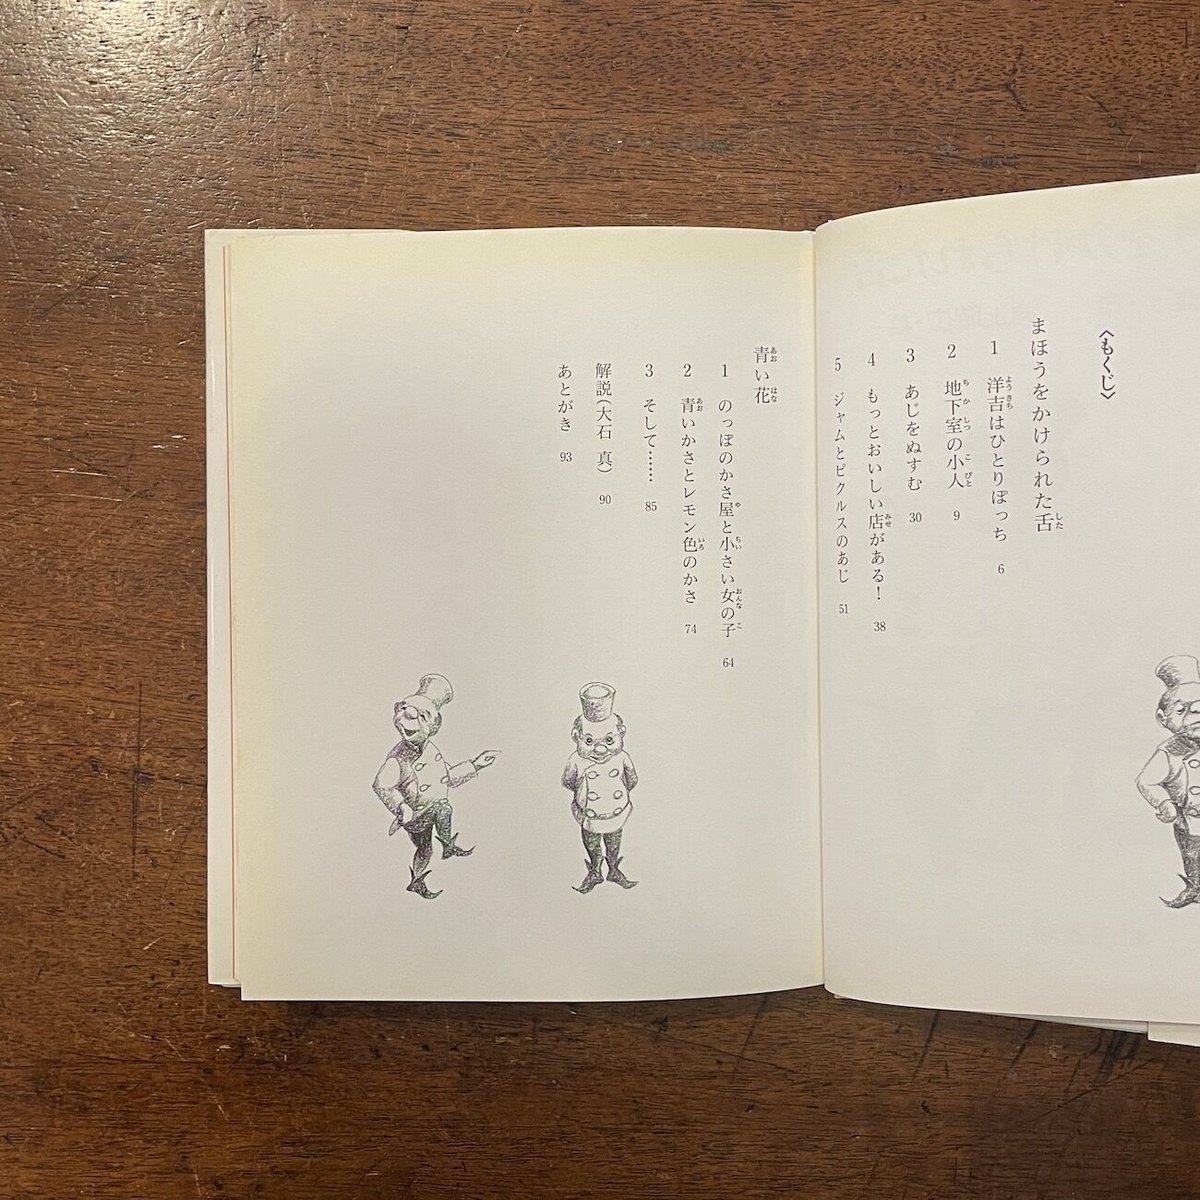 〈もくじ〉
まほうをかけられた舌
1 洋吉はひとりぽっち 6
2 地下室の小人 9
3 あじをぬすむ 30
4 もっとおいしい店がある! 38
5 ジャムとピクルスのあじ 51
青い花
1 のっぽのかさ屋と小さい女の子 64
2 青いかさとレモン色のかさ 74
3 そして…… 85
解説(大石 真) 90
あとがき 93